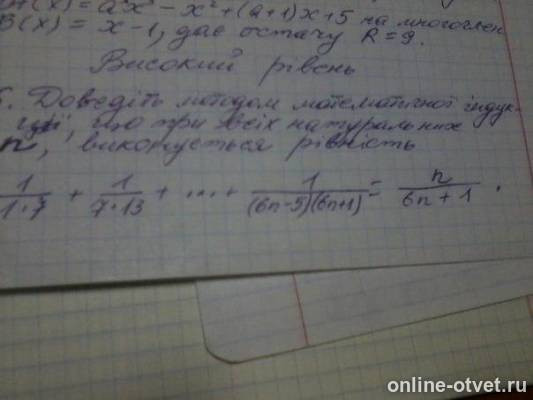 A(x) = a²x³ - x² + (a+1)x + 5 на многочлен
B(x) = x - 1, дає остачу R = 9.
Високий рівень
Доведіть методом математичної індук-
ції, що при всіх натуральних
n, виконується рівність
1/(1·7) + 1/(7·13) + ... + 1/((6n-5)(6n+1)) = n/(6n+1).
online-otvet.ru